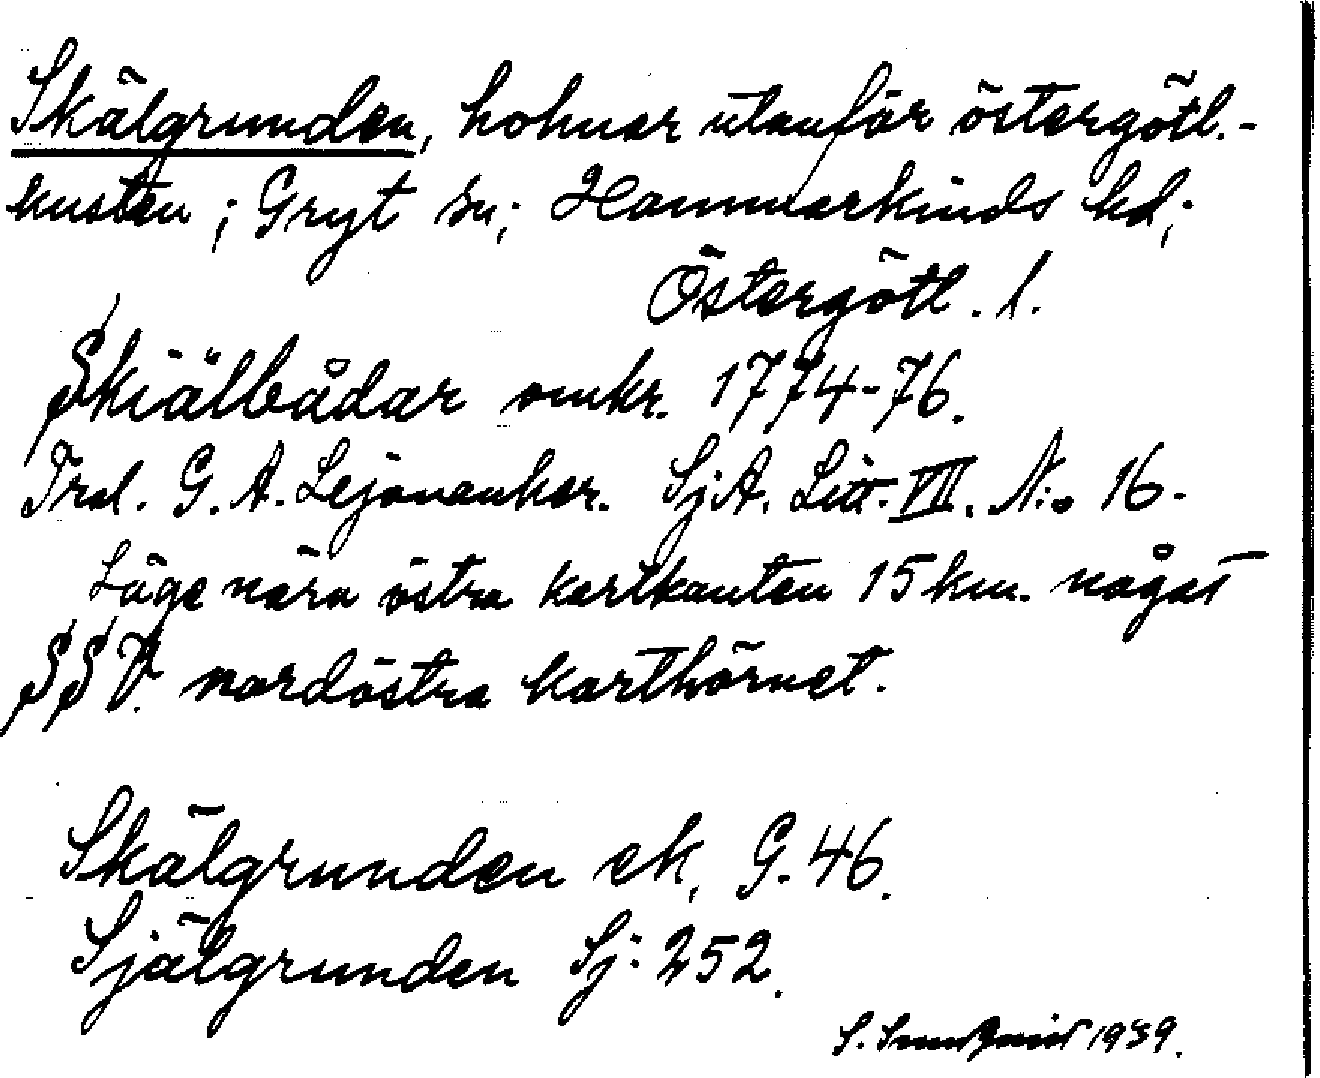 Skälgrunden, holmar utanför östergötl.-
kusten; Gryt sn; Hammarkinds hd;
Östergötl. l.
Skiälbådar omkr. 1774-76.
Trol. G. A. Lejonanker. SjA. Litt. VII. N:o 16.
Läge nära östra kartkanten 15 km. något
SSV. nordöstra karthörnet.
Skälgrunden ek, G. 46.
Själgrunden Sj: 252.
S. 1939.